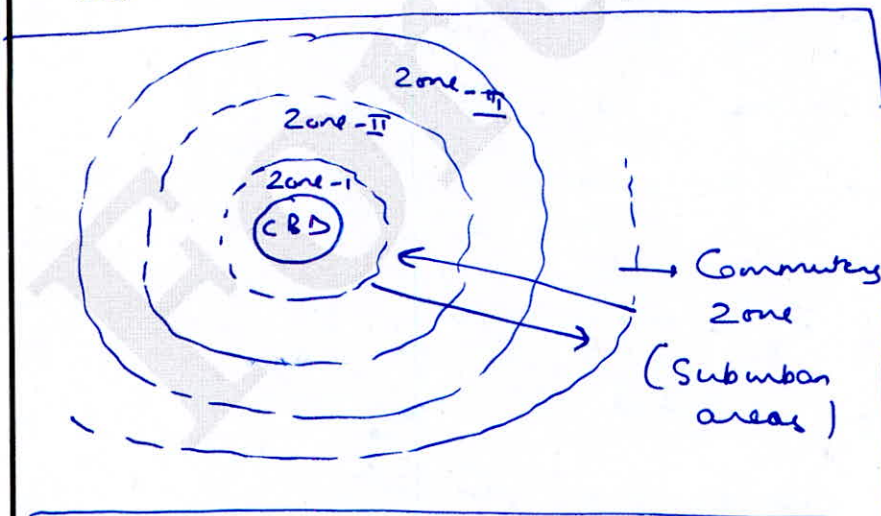 Zone-III
Zone-II
Zone-I
CBD
Commuters
Zone
(Suburban
areas)